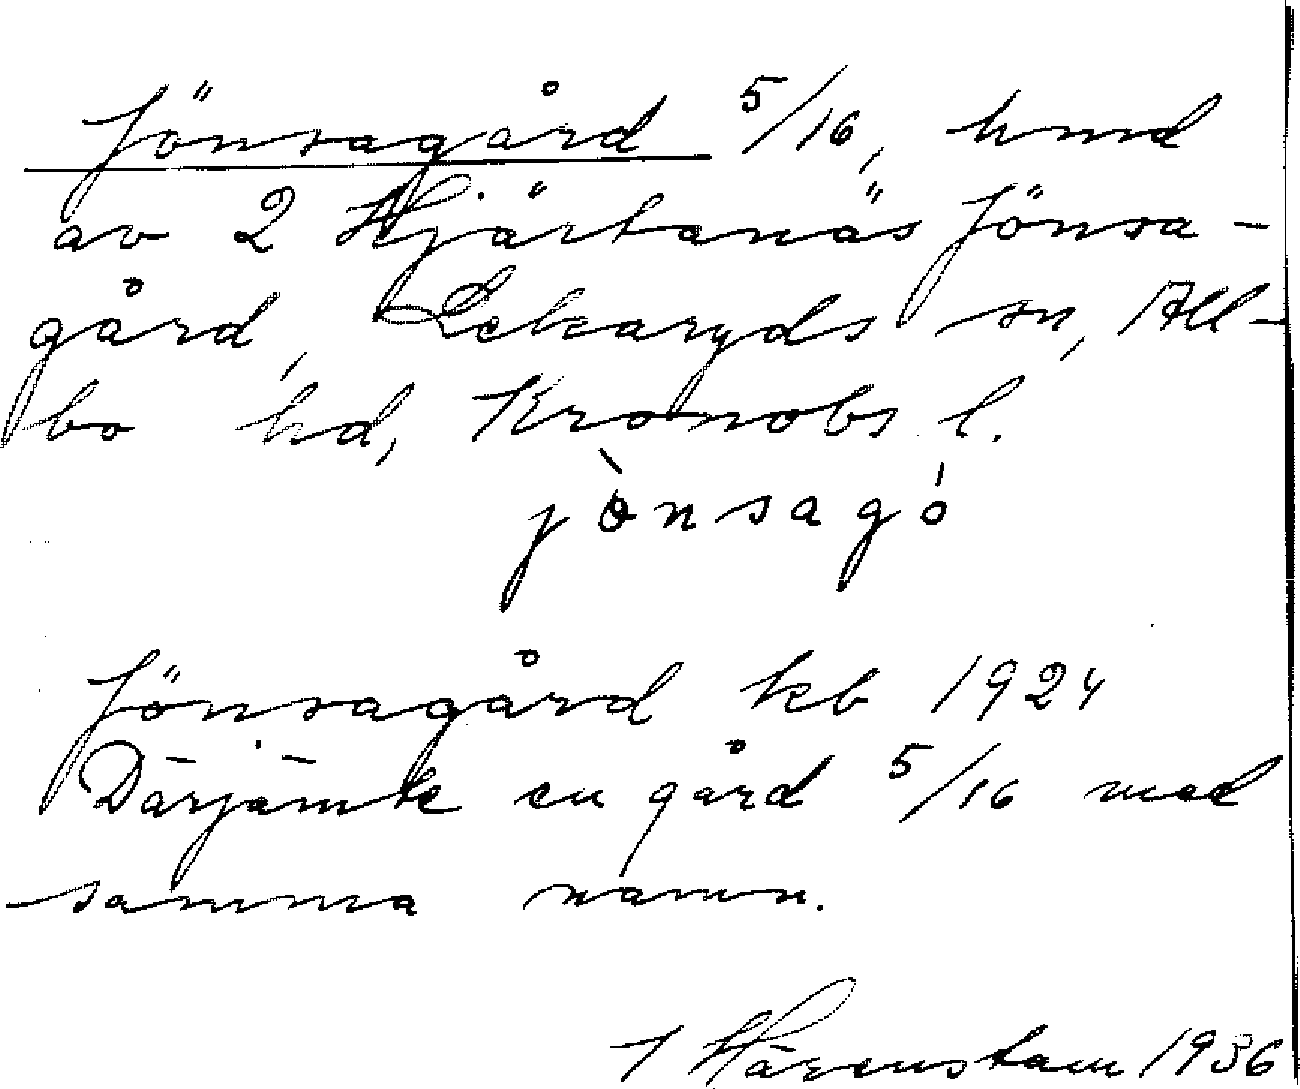 Jönsagård 5/16, hmd
av 2 Hjärtanäs Jönsa-
gård, Lekaryds sn, All-
bo hd, Kronobs l.
jònsagó
Jönsagård kb 1924
Därjämte en gård 5/16 med
samma namn.
I Härenstam 1936